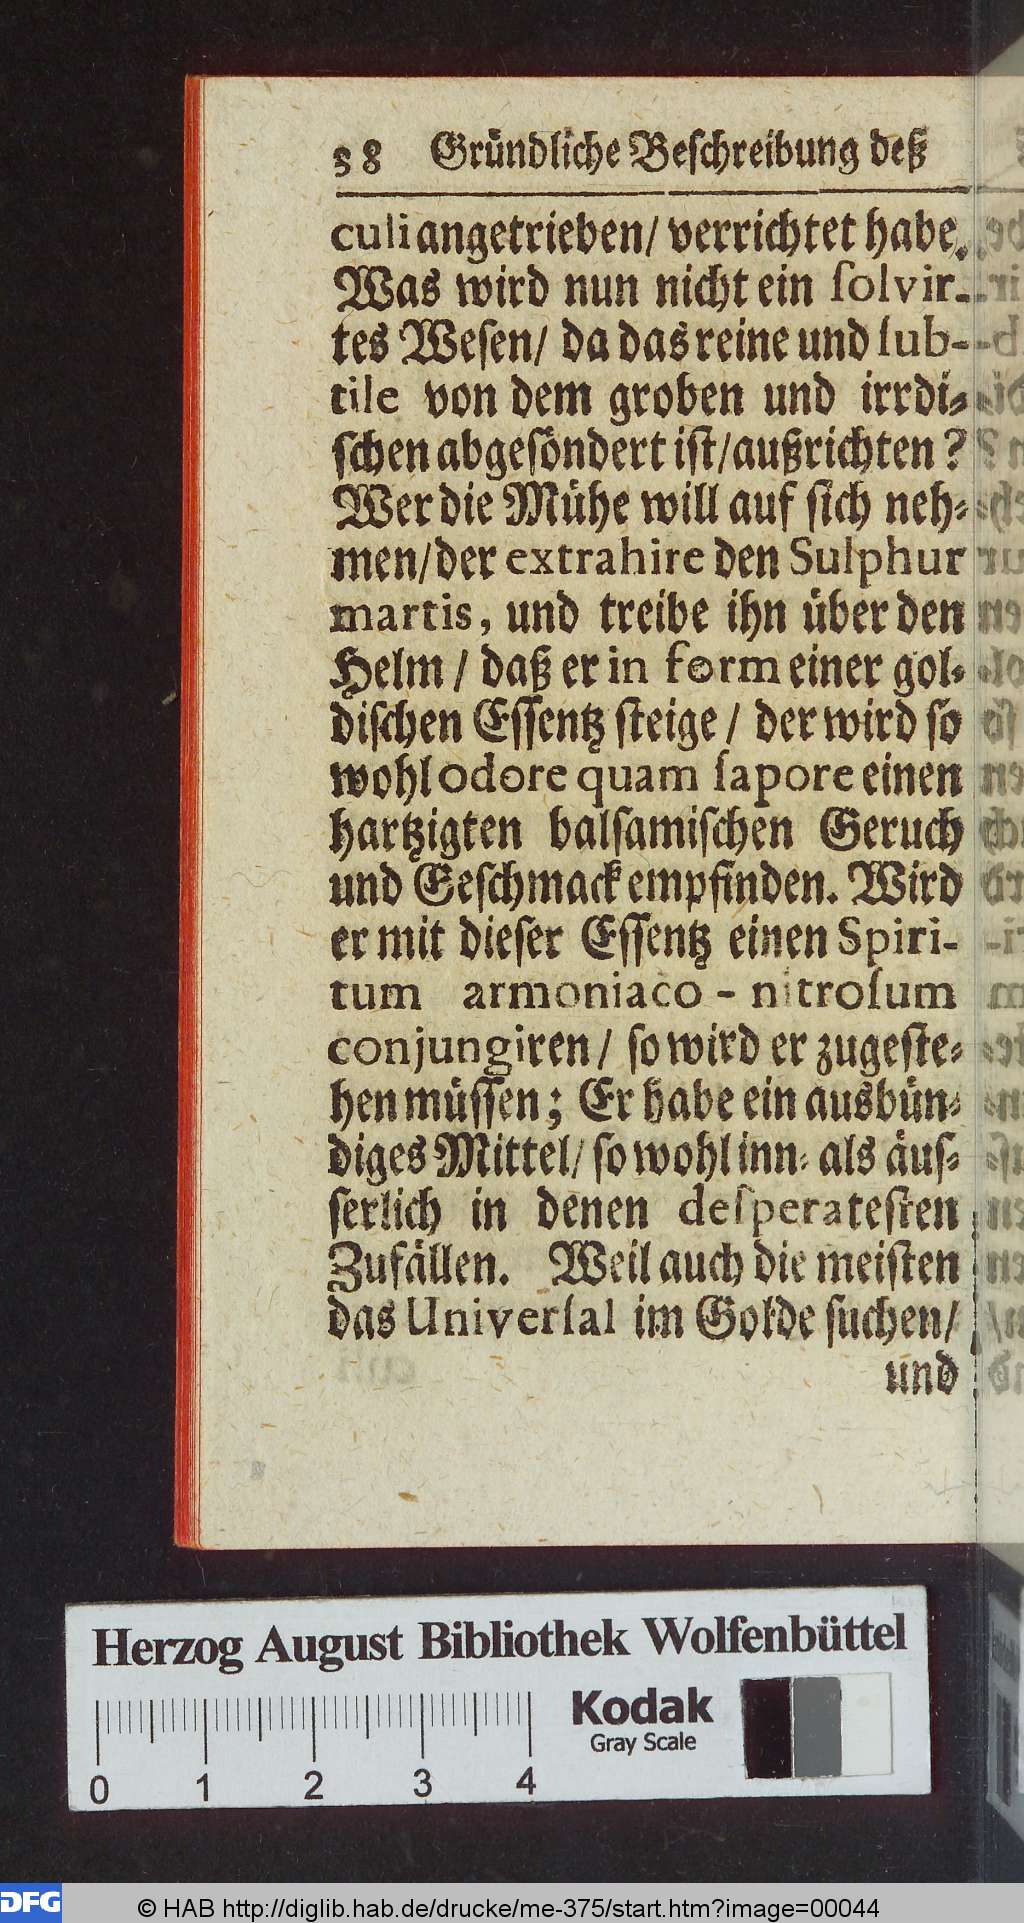 38 Gründliche Beſchreibung deß
culi angetrieben/ verrichtet habe.
Was wird nun nicht ein ſolvir-
tes Weſen/ da das reine und ſub-
tile von dem groben und irrdi-
ſchen abgeſöndert iſt/ außrichten?
Wer die Mühe will auf ſich neh-
men/ der extrahire den Sulphur
martis, und treibe ihn über den
Helm / daß er in form einer gol-
diſchen Eſſentz ſteige / der wird ſo
wohl odore quam ſapore einen
hartzigten balſamiſchen Geruch
und Geſchmack empfinden. Wird
er mit dieſer Eſſentz einen Spiri-
tum armoniaco - nitroſum
conjungiren / ſo wird er zugeſte-
hen müſſen; Er habe ein ausbün-
diges Mittel/ ſo wohl inn- als äuſ-
ſerlich in denen deſperateſten
Zufällen. Weil auch die meiſten
das Univerſal im Golde ſuchen/
und
Herzog August Bibliothek Wolfenbüttel
Kodak
Gray Scale
0 1 2 3 4
DFG © HAB http://diglib.hab.de/drucke/me-375/start.htm?image=00044